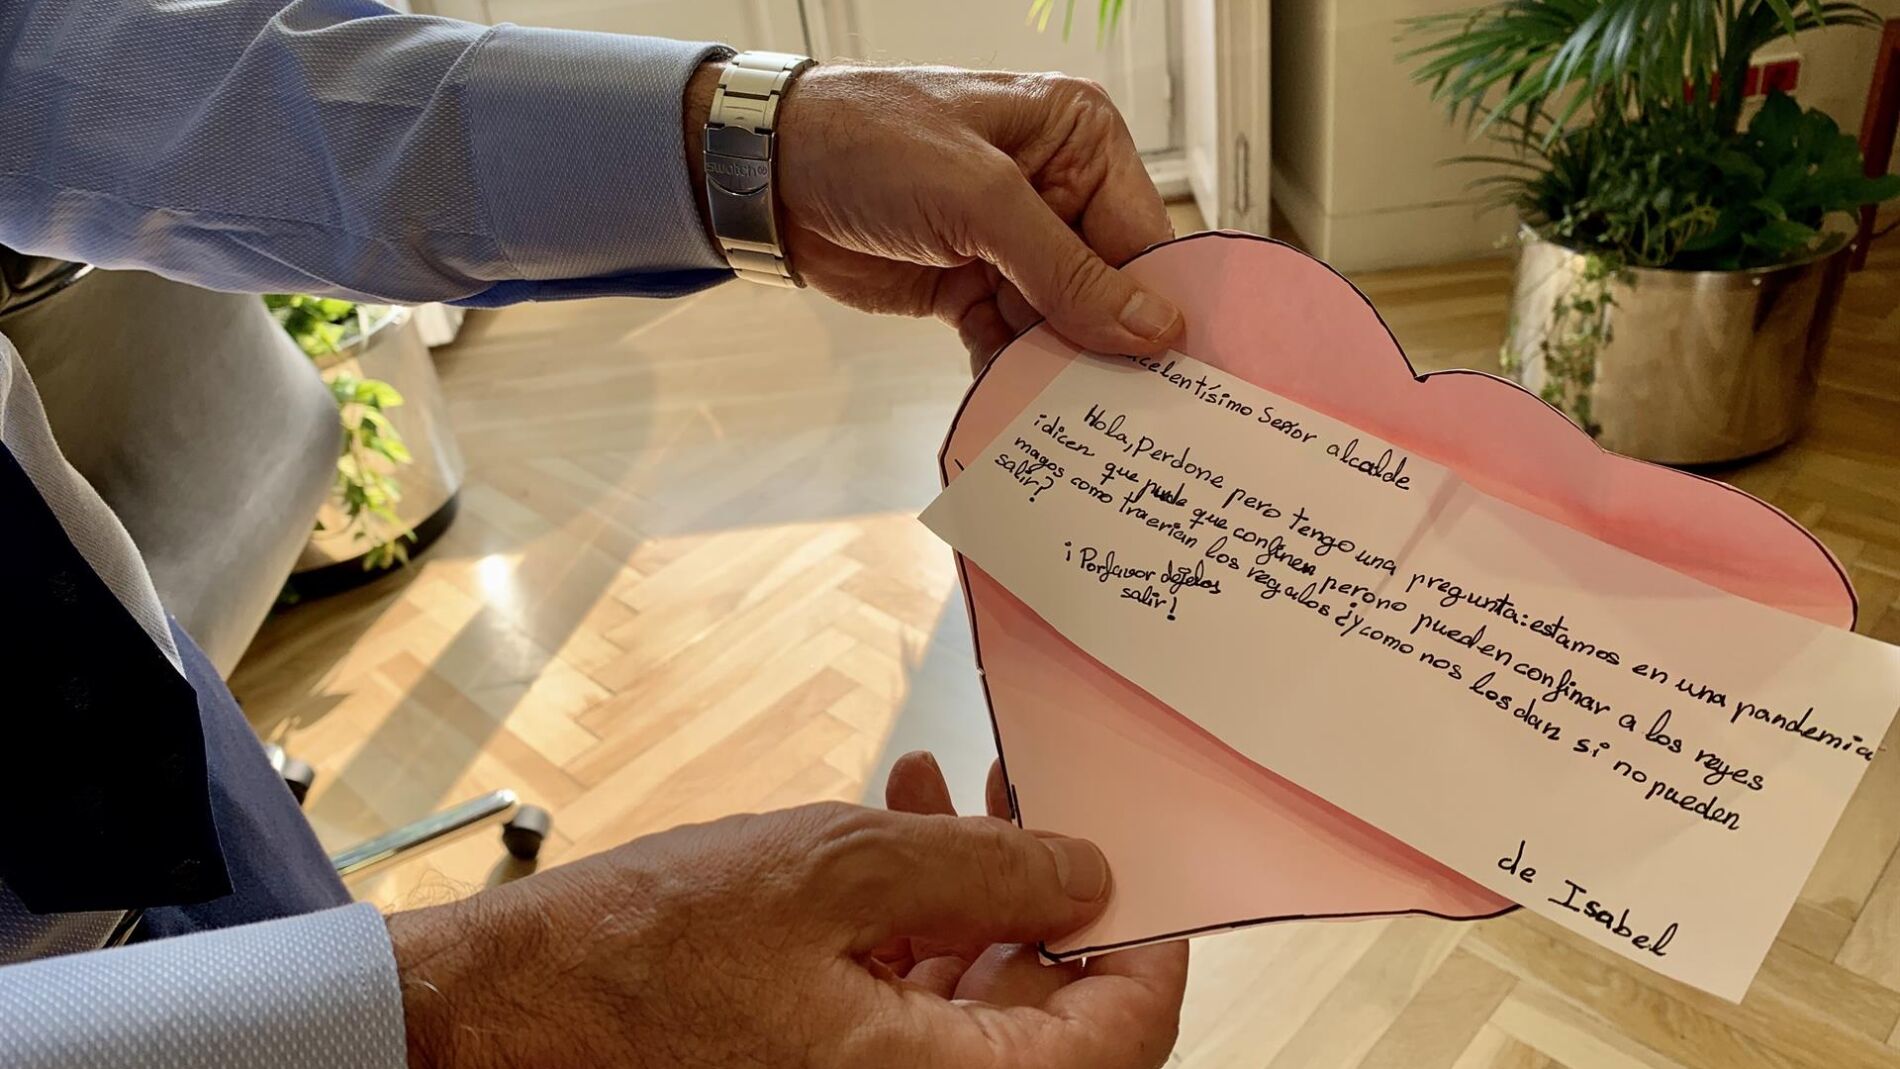 swatch
excelentísimo Señor alcalde
Hola, perdone pero tengo una pregunta: estamos en una pandemia
¡dicen que puede que confinen pero no pueden confinar a los reyes
magos como traerian los regalos ¿y como nos los dan si no pueden
salir?
¡Porfavor déjelos
salir!
de Isabel